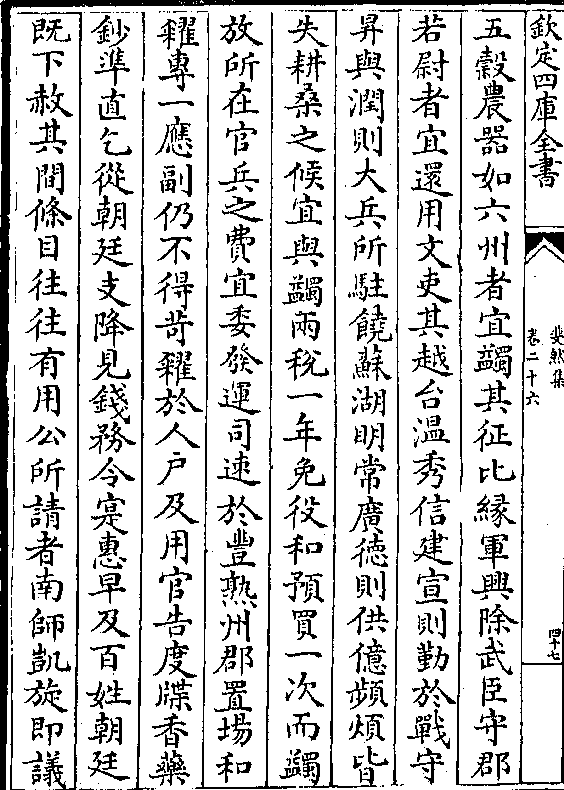 欽定四庫全書
斐然集
卷二十六
四十七
五穀農器如六州者宜蠲其征比縁軍興除武臣守郡
若尉者宜還用文吏其越台溫秀信建宣則勤於戰守
昇與潤則大兵所駐饒蘇湖明常廣徳則供億頻煩皆
失耕桑之候宜與蠲兩稅一年免役和預買一次而蠲
放所在官兵之費宜委發運司速於豐熟州郡置場和
糴專一應副仍不得苛糴於人戶及用官告度牒香藥
鈔準直乞從朝廷支降見錢務令寔惠早及百姓朝廷
既下赦其間條目往往有用公所請者南師凱旋即議